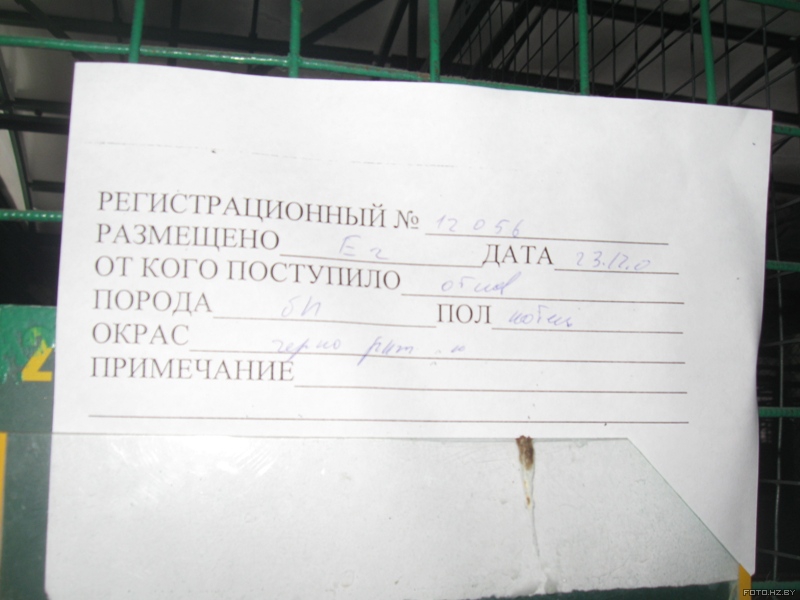 РЕГИСТРАЦИОННЫЙ № 12056
РАЗМЕЩЕНО ДАТА 23.12.0
ОТ КОГО ПОСТУПИЛО отлов
ПОРОДА бп ПОЛ
ОКРАС черно
ПРИМЕЧАНИЕ
2
FOTO.HZ.BY